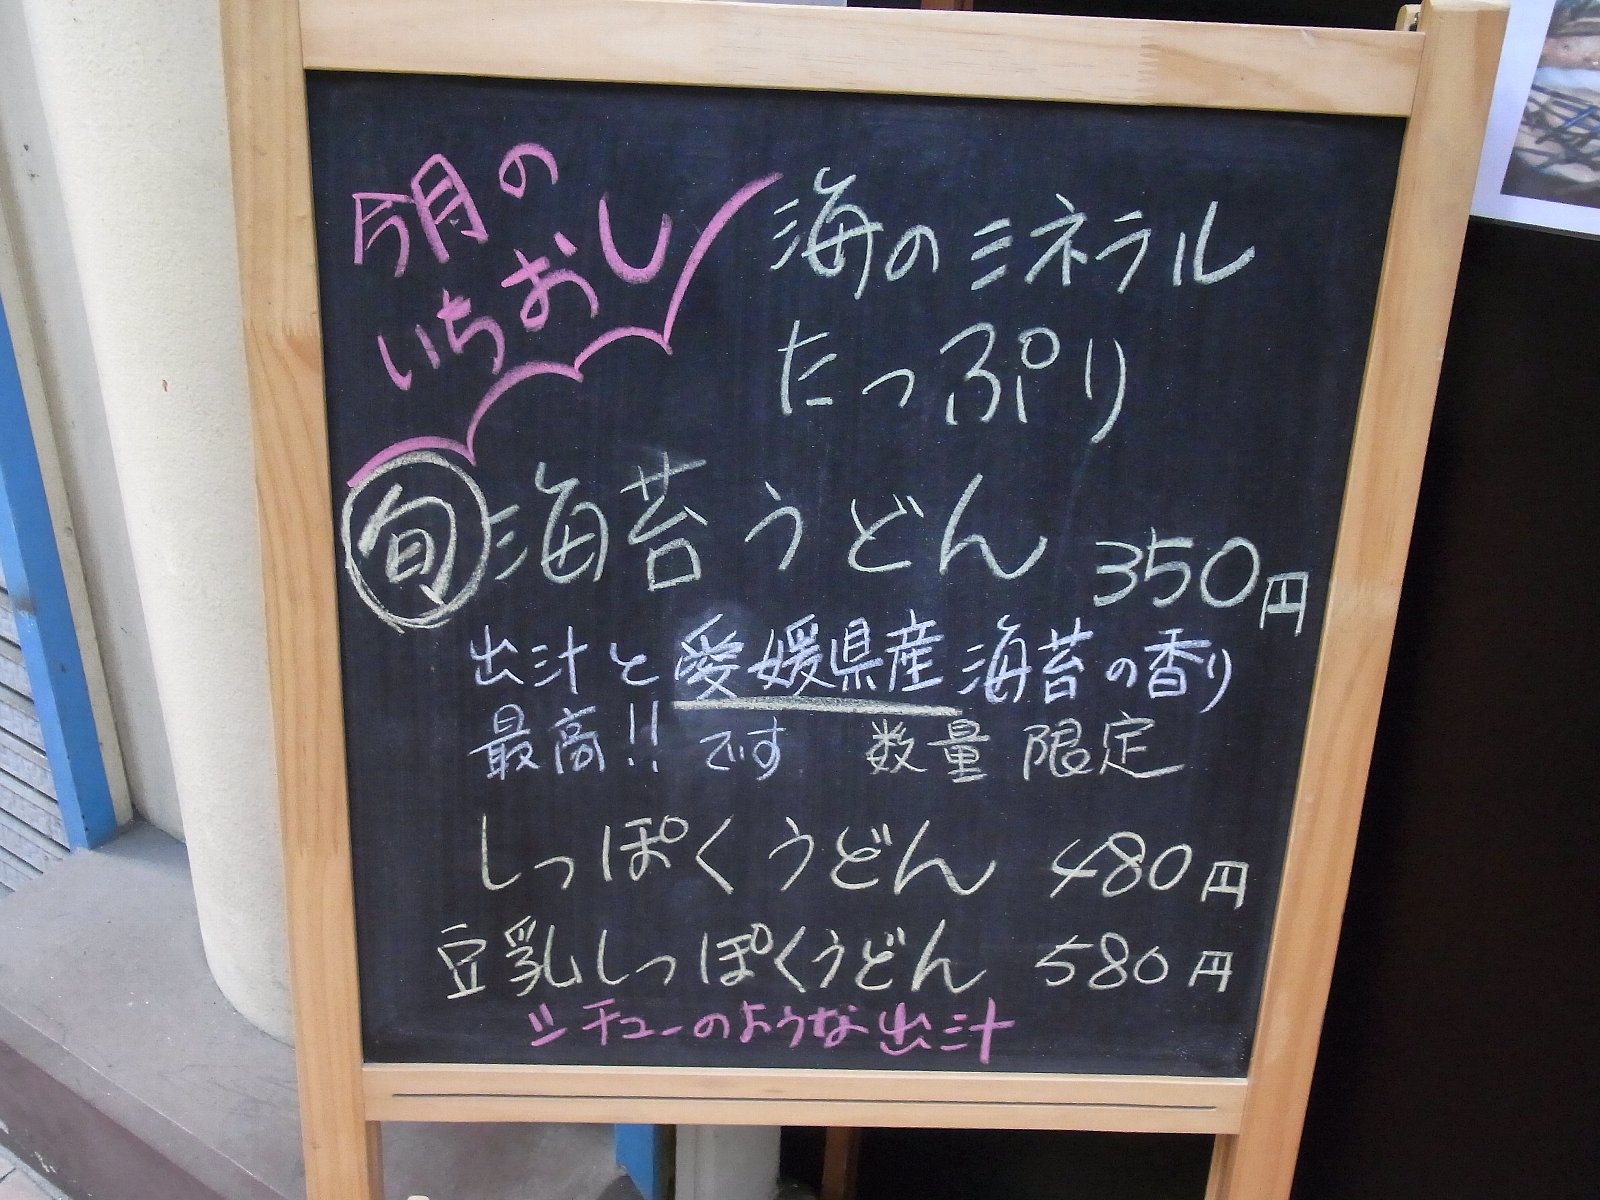 今月の
いちおし
海のミネラル
たっぷり
旬 海苔うどん 350円
出汁と愛媛県産海苔の香り
最高!!です 数量限定
しっぽくうどん 480円
豆乳しっぽくうどん 580円
シチューのような出汁